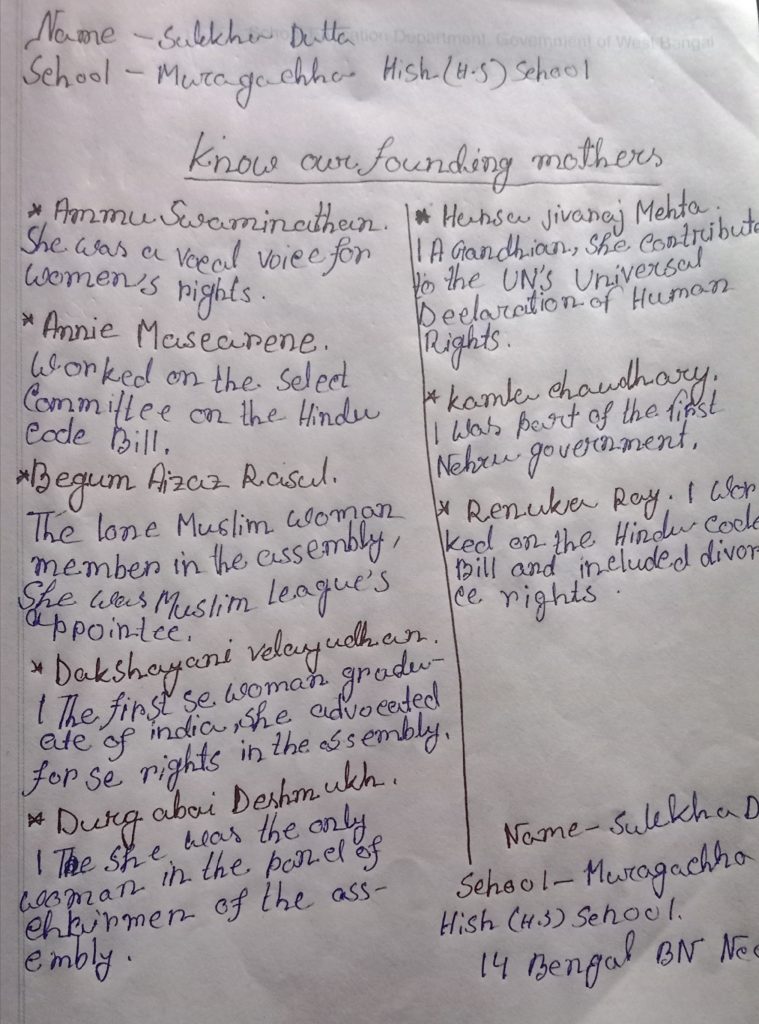 Name - Sulekha Dutta
School - Muragachha Hish (H.S) School
ation Department, Government of West Bengal
Know our founding mothers
* Ammu Swaminathan.
She was a vocal voice for
women's rights.
* Annie Mascarene.
Worked on the Select
Committee on the Hindu
Code Bill.
* Begum Aizaz Rasul.
The lone Muslim woman
member in the assembly,
She was Muslim League's
appointee.
* Dakshayani velayudhan.
| The first se woman gradu-
ate of india, she advocated
for se rights in the assembly.
* Durgabai Deshmukh.
| The She was the only
woman in the panel of
chairmen of the ass-
embly.
* Hansa jivaraj Mehta.
| A Gandhian, She contribut
to the UN's Universal
Declaration of Human
Rights.
* kamla chaudhary.
| Was part of the first
Nehru government.
* Renuka Ray. | Wor
ked on the Hindu Code
Bill and included divor
ce rights.
Name - Sulekha D
School - Muragachha
Hish (H.S) School.
14 Bengal BN